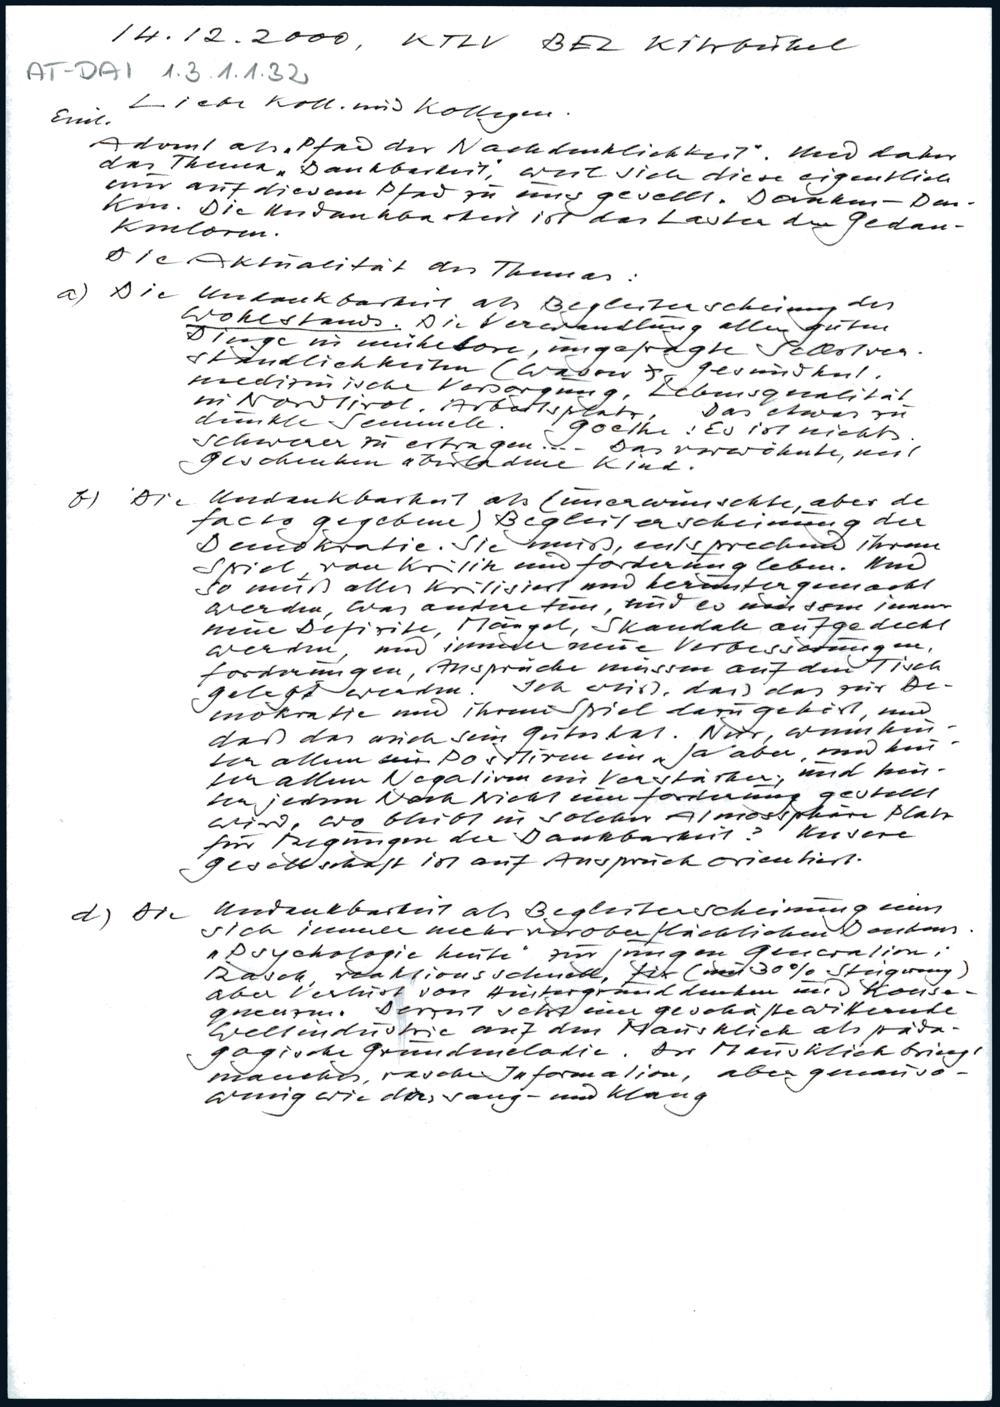 14.12.2000, KTLV BEZ Kitzbühel
AT-DAI 1.3.1.1.32
Liebe Koll. und Kollegen.
Einl.
Advent als "Pfad der Nachdenklichkeit". Und daher
das Thema "Dankbarkeit", weil sich diese eigentlich
nur auf diesem Pfad zu uns gesellt. Denken - Dan-
ken. Die Undankbarkeit ist das Laster der Gedan-
kenlosen.
Die Aktualität des Themas:
a) Die Undankbarkeit als Begleiterscheinung des
Wohlstands. Die Verwandlung aller guten
Dinge in mühelose, ungefragte Selbstver-
ständlichkeiten (Wasser, Gesundheit,
medizinische Versorgung, Lebensqualität
in Nordtirol. Arbeitsplatz, Das etwas zu
dunkle Semmele. Goethe: Es ist nichts
schwerer zu ertragen... Das verwöhnte, mit
Geschenken überladene Kind.
b) Die Undankbarkeit als (unerwünschte, aber de
facto gegebene) Begleiterscheinung der
Demokratie. Sie muß, entsprechend ihrem
Spiel, von Kritik und Forderung leben. Und
so muß alles kritisiert und heruntergemacht
werden, was andere tun, und es müssen immer
neue Defizite, Mängel, Skandale aufgedeckt
werden, und immer neue Verbesserungen,
Forderungen, Ansprüche müssen auf den Tisch
gelegt werden. Ich weiß, daß das zur De-
mokratie und ihrem Spiel dazugehört, und
daß das auch sein Gutes hat. Nur, wenn hin-
ter allem Positiven ein "Ja aber", und hin-
ter allem Negativen ein Verstärker, und hin-
ter jedem Noch Nicht eine Forderung gestellt
wird, wo bleibt in solcher Atmossphäre Platz
für Regungen der Dankbarkeit? Unsere
Gesellschaft ist auf Anspruch orientiert.
d) Die Undankbarkeit als Begleiterscheinung eines
sich immer mehr veroberflächlichenden Denkens.
"Psychologie heute" zur jungen Generation:
Rasch, reaktionsschnell, fix (um 30% Steigerung)
aber Verlust von Hintergrunddenken und Konse-
quenzen. Derzeit setzt eine geschäftewitternde
Weltindustrie auf den Mausklick als päda-
gogische Grundmelodie. Der Mausklick bringt
manches, rasche Information, aber genauso-
wenig wie dies sang- und klang